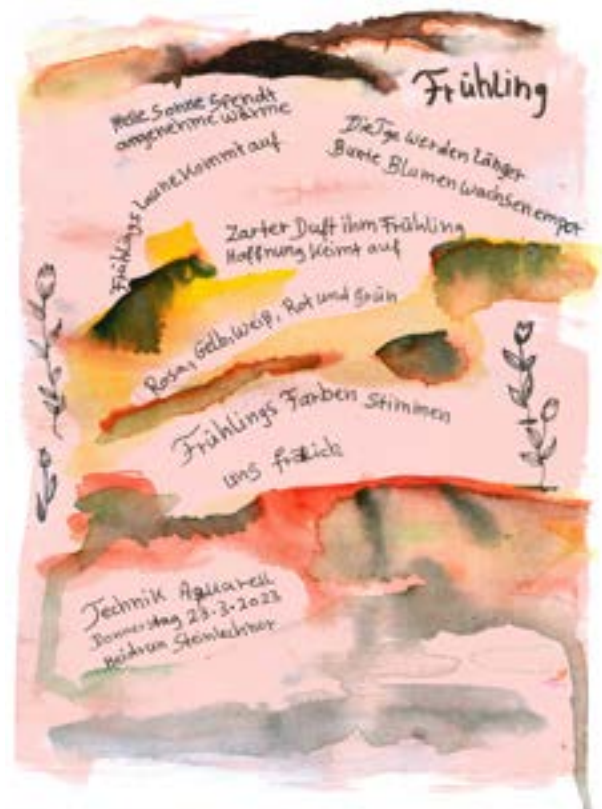 Frühling
Helle Sonne Spendt
angenehme wärme
Frühlings laune Kommt auf
Die Tge werden länger
Bunte Blumen wachsen empor
Zarter Duft ihm Frühling
Hoffnung Keimt auf
Rosa, Gelb, Weiß, Rot und Grün
Frühlings Farben Stimmen
uns frölich
Technik Aquarell
Donnerstag 23.3.2023
Heidrun Steinlechner